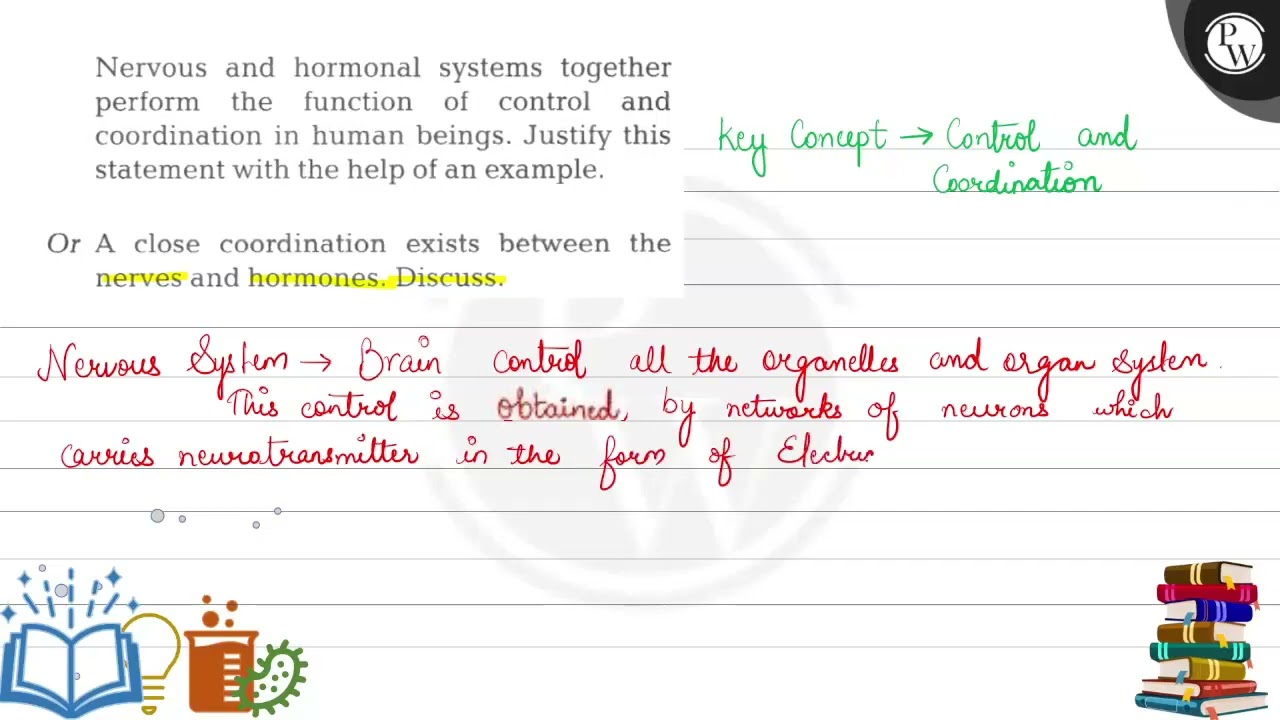 Nervous and hormonal systems together
perform the function of control and
coordination in human beings. Justify this
statement with the help of an example.
Or A close coordination exists between the
nerves and hormones. Discuss.
PW
Key Concept → Control and
Coordination
Nervous System → Brain control all the organelles and organ system.
This control is obtained, by networks of neurons which
carries neurotransmitter in the form of